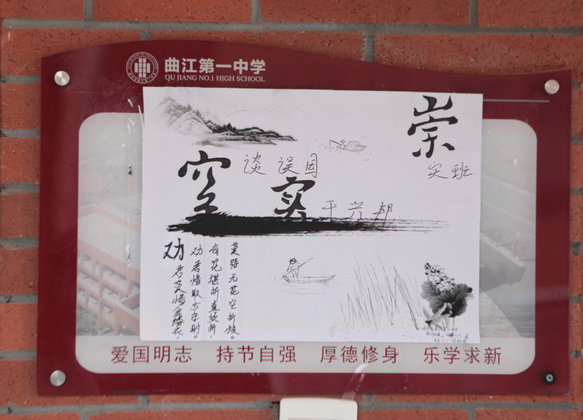 曲江第一中学
QU JIANG NO.1 HIGH SCHOOL
崇
实班
空谈误国
实干兴邦
劝君莫惜金缕衣,
劝君惜取少年时。
有花堪折直须折,
莫待无花空折枝。
爱国明志 持节自强 厚德修身 乐学求新